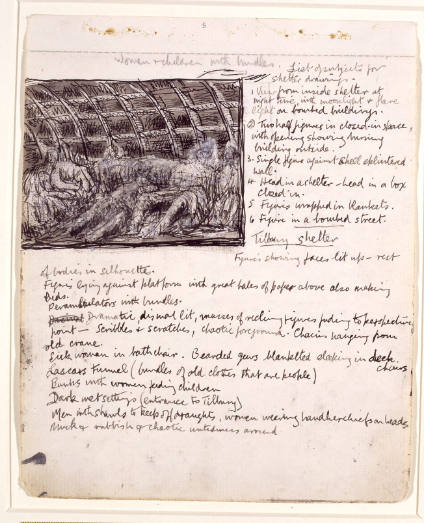 Women & children with bundles.
List of subjects for
shelter drawings.
1 View from inside shelter at
night time, with moonlight & flare
light on bombed buildings.
2 Two half figures in closed-in space,
with opening showing burning
building outside.
3. Single figure against shell splintered
wall.
4. Head in a shelter – head in a box
closed in.
5. Figures wrapped in blankets.
6. Figure in a bombed street.
Tilbury shelter
Figures showing faces lit up – rest
of bodies in silhouette.
Figures lying against platform with great bales of paper above also making
beds.
Perambulators with bundles.
Dramatic, dismal lit, masses of reclining figures fading to perspective
point – Scribbles & scratches, chaotic foreground. Chains hanging from
old crane.
Sick woman in bathchair. Bearded Jews blanketed sleeping in deck
chairs.
Lascars Tunnel (bundles of old clothes that are people)
Bunks with women feeding children
Dark wet settings (entrance to Tilbury)
Men with shawls to keep off draughts, women wearing handkerchiefs on heads
Muck & rubbish & chaotic untidiness around